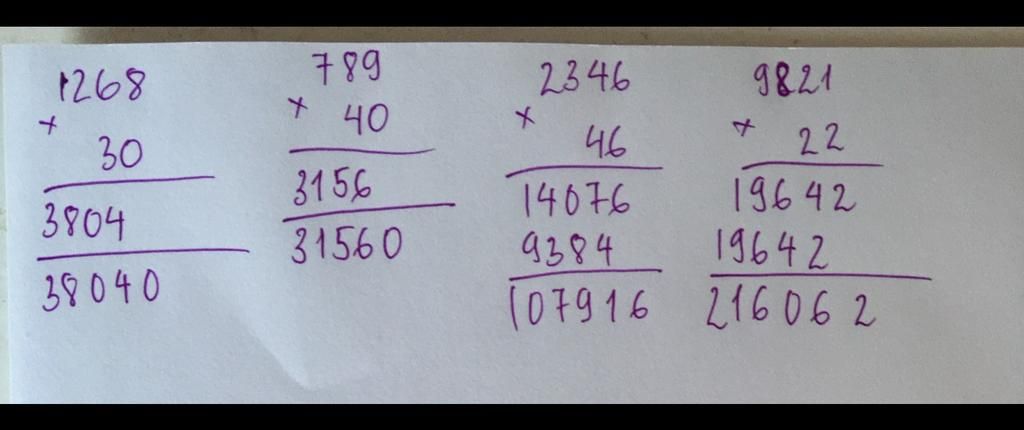 1268
×
30
3804
38040
789
×
40
3156
31560
2346
×
46
14076
9384
107916
9821
×
22
19642
19642
216062